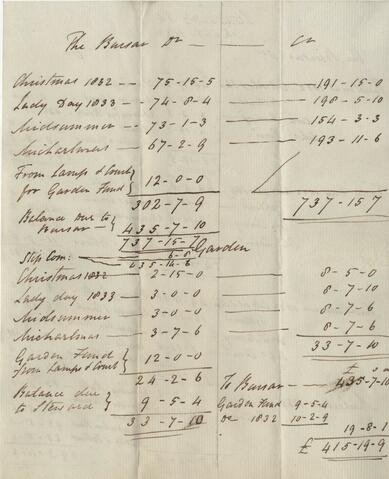 The Bursar Dr — — Cr
Christmas 1832 — 75-15-5 — 191-15-0
Lady Day 1833 — 74-8-4 — 198-5-10
Midsummer — 73-1-3 — 154-3-3
Michaelmas — 67-2-9 — 193-11-6
From Lamps & Court
for Garden Fund } 12-0-0
302-7-9 737-15 7
Balance due to
Bursar — } 435-7-10
737-15-7
Garden
6-8
435-14-6
Christmas 1832 — 2-15-0 — 8-5-0
Lady day 1833 — 3-0-0 — 8-7-10
Midsummer — 3-0-0 — 8-7-6
Michaelmas — 3-7-6 — 8-7-6
33-7-10
Garden Fund
from Lamps & Court } 12-0-0
24-2-6 To Bursar — £ 435-7-10
Balance due
to Steward } 9-5-4 Garden Fund 9-5-4
33-7-10 Do 1832 10-2-9
19-8-1
£ 415-19-9